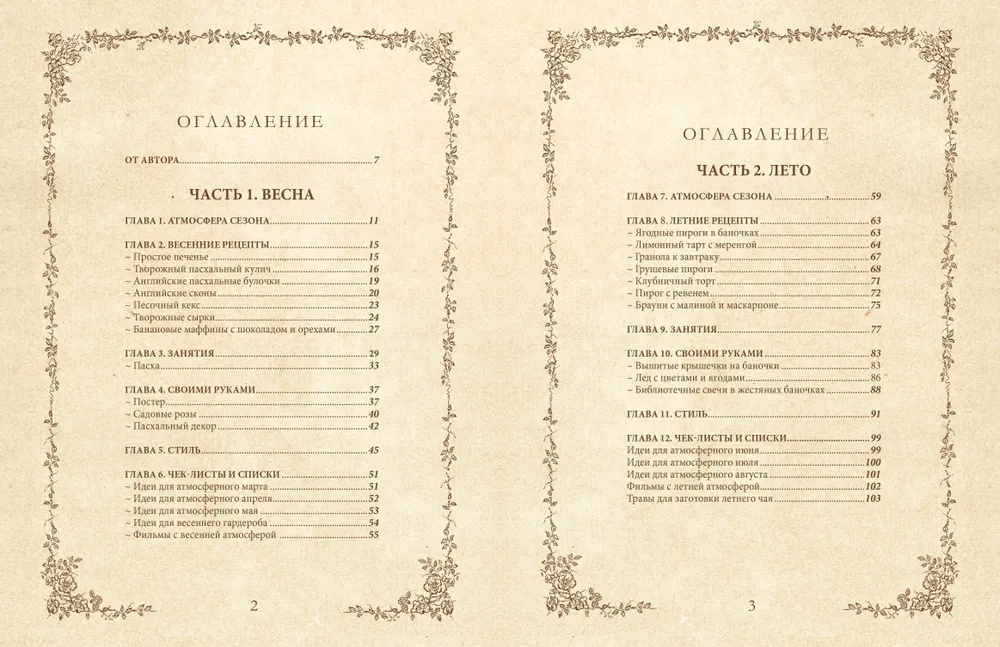 ОГЛАВЛЕНИЕ
ОТ АВТОРА 7
ЧАСТЬ 1. ВЕСНА
ГЛАВА 1. АТМОСФЕРА СЕЗОНА 11
ГЛАВА 2. ВЕСЕННИЕ РЕЦЕПТЫ 15
~ Простое печенье 15
~ Творожный пасхальный кулич 16
~ Английские пасхальные булочки 19
~ Английские сконы 20
~ Песочный кекс 23
~ Творожные сырки 24
~ Банановые маффины с шоколадом и орехами 27
ГЛАВА 3. ЗАНЯТИЯ 29
~ Пасха 33
ГЛАВА 4. СВОИМИ РУКАМИ 37
~ Постер 37
~ Садовые розы 40
~ Пасхальный декор 42
ГЛАВА 5. СТИЛЬ 45
ГЛАВА 6. ЧЕК-ЛИСТЫ И СПИСКИ 51
~ Идеи для атмосферного марта 51
~ Идеи для атмосферного апреля 52
~ Идеи для атмосферного мая 53
~ Идеи для весеннего гардероба 54
~ Фильмы с весенней атмосферой 55
2
ОГЛАВЛЕНИЕ
ЧАСТЬ 2. ЛЕТО
ГЛАВА 7. АТМОСФЕРА СЕЗОНА 59
ГЛАВА 8. ЛЕТНИЕ РЕЦЕПТЫ 63
~ Ягодные пироги в баночках 63
~ Лимонный тарт с меренгой 64
~ Гранола к завтраку 67
~ Грушевые пироги 68
~ Клубничный торт 71
~ Пирог с ревенем 72
~ Брауни с малиной и маскарпоне 75
ГЛАВА 9. ЗАНЯТИЯ 77
ГЛАВА 10. СВОИМИ РУКАМИ 83
~ Вышитые крышечки на баночки 83
~ Лед с цветами и ягодами 86
~ Библиотечные свечи в жестяных баночках 88
ГЛАВА 11. СТИЛЬ 91
ГЛАВА 12. ЧЕК-ЛИСТЫ И СПИСКИ 99
Идеи для атмосферного июня 99
Идеи для атмосферного июля 100
Идеи для атмосферного августа 101
Фильмы с летней атмосферой 102
Травы для заготовки летнего чая 103
3